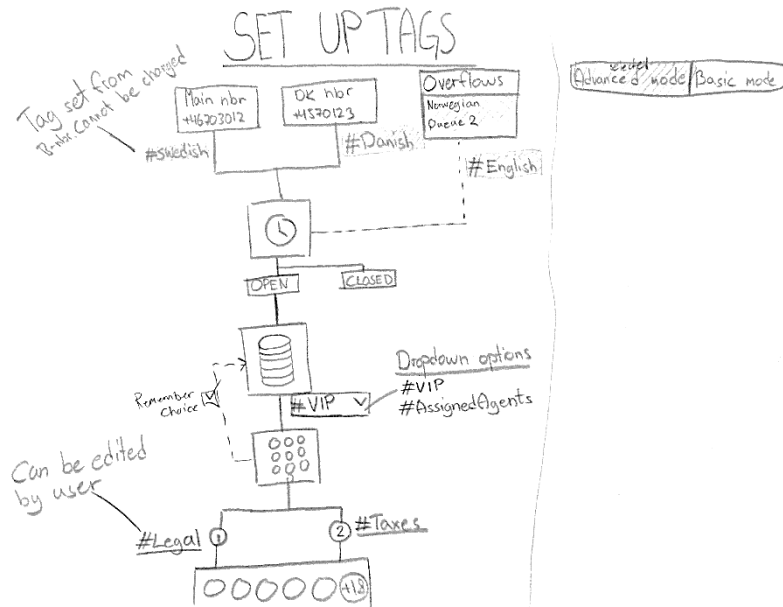 SET UP TAGS
selected
Advanced mode
Basic mode
Tag set from
B-nbr. Cannot be changed
Main nbr
+46203012
DK nbr
+4570123
Overflows
Norwegian
Queue 2
#swedish
#Danish
#English
OPEN
CLOSED
Remember
choice
#VIP
Dropdown options
#VIP
#AssignedAgents
Can be edited
by user
#Legal
1
2
#Taxes
+18